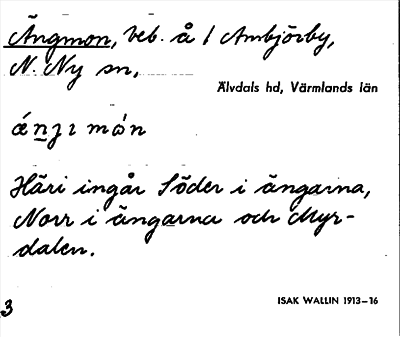 Ängmon, beb. å / Ambjörby,
N. Ny sn,
Älvdals hd, Värmlands län
Häri ingår Söder i ängarna,
Norr i ängarna och Myr-
dalen.
3
ISAK WALLIN 1913–16